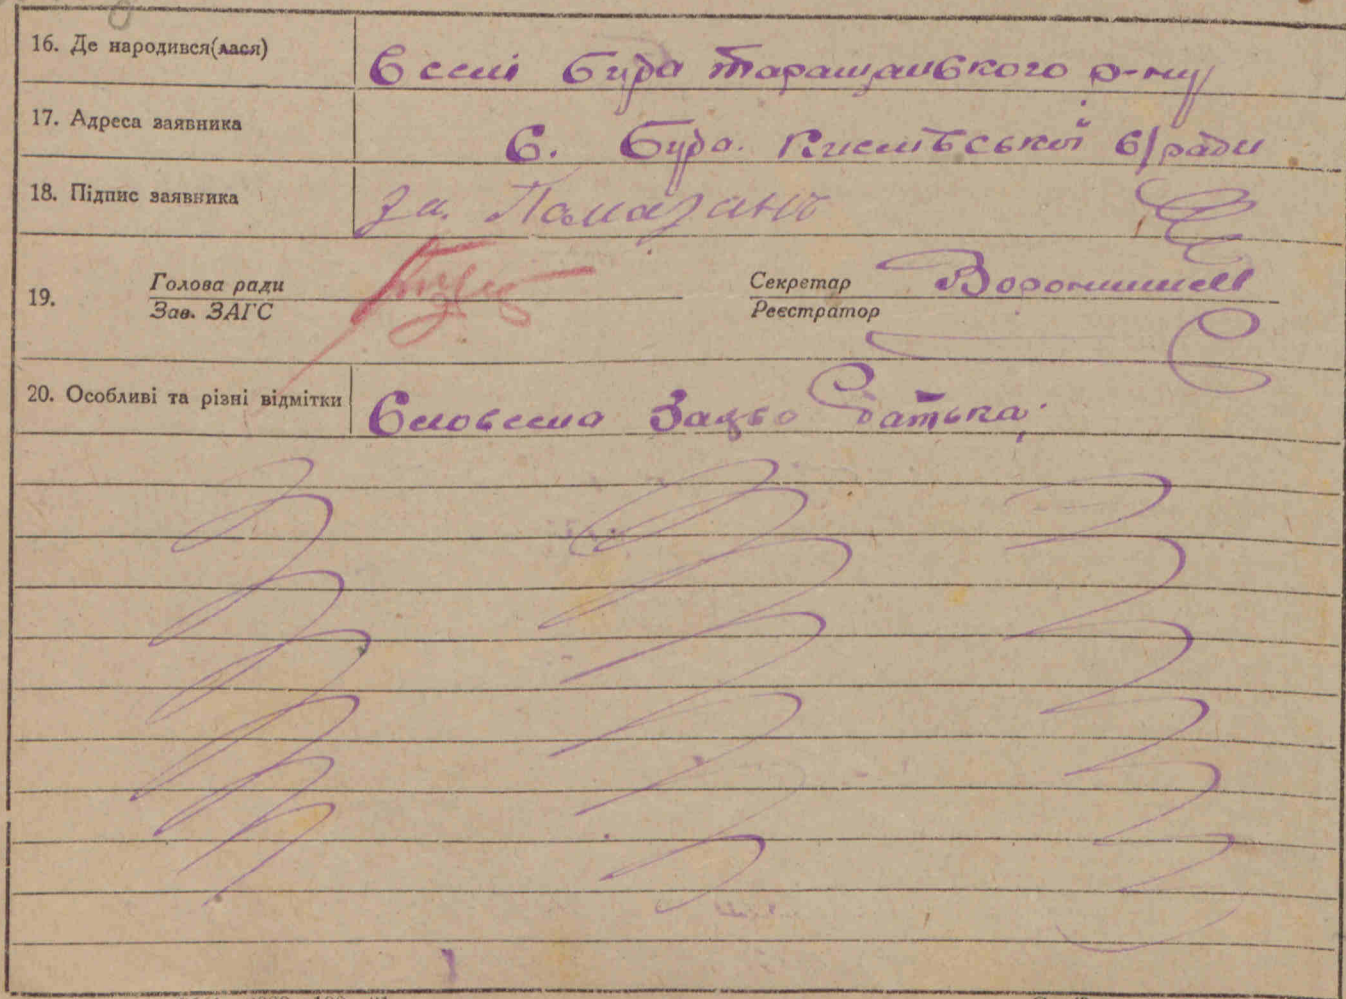 16. Де народився(лася) В селі Буда Таращанского р-ну
17. Адреса заявника С. Буда. Кислівської с/ради
18. Підпис заявника за.
19. Голова ради Секретар
Зав. ЗАГС Реєстратор
20. Особливі та різні відмітки Словесна Заява батька